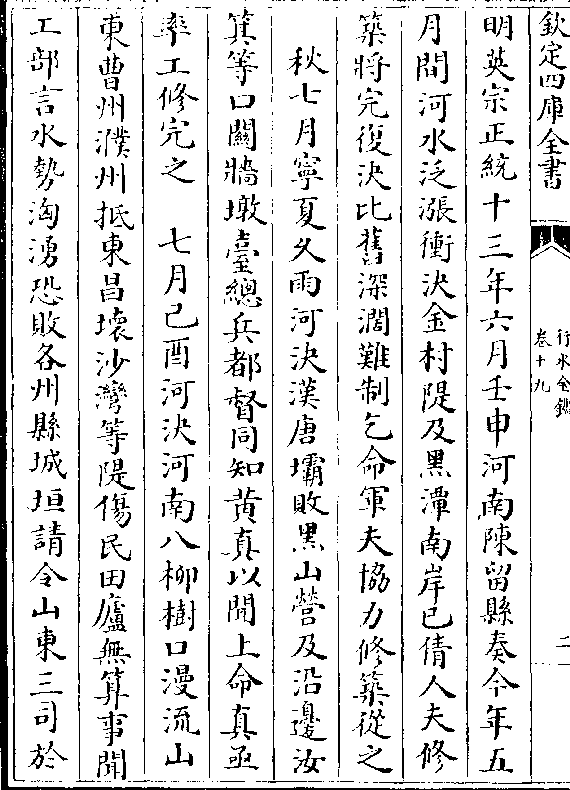 欽定四庫全書
行水金鑑
卷十九
二
明英宗正統十三年六月壬申河南陳留縣奏今年五
月間河水泛漲衝決金村隄及黑潭南岸已倩人夫修
築將完復決比舊深濶難制乞命軍夫協力修築從之
秋七月寧夏久雨河決漢唐壩敗黑山營及沿邊汝
箕等口關牆墩臺總兵都督同知黄真以聞上命真亟
率工修完之　七月己酉河決河南八柳樹口漫流山
東曹州濮州抵東昌壞沙灣等隄傷民田廬無算事聞
工部言水勢洶湧恐敗各州縣城垣請令山東三司於